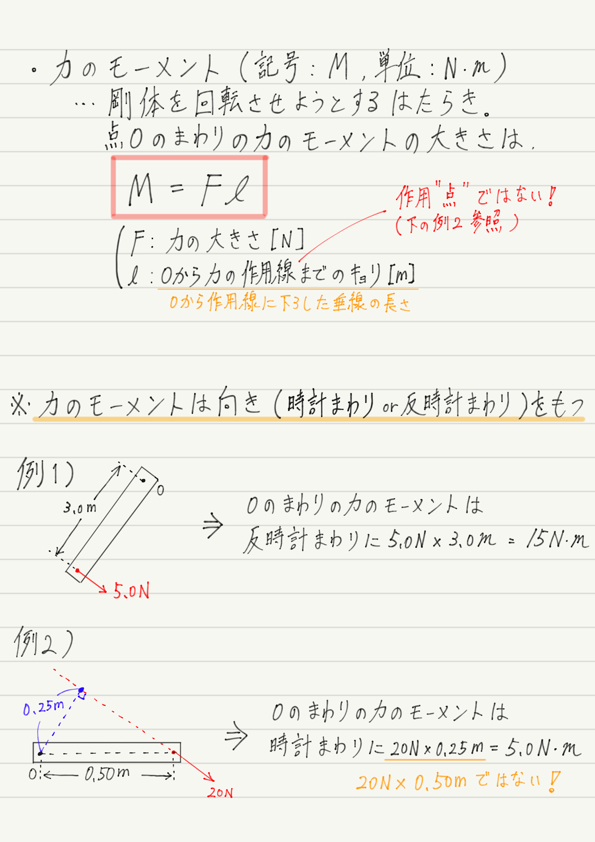 ・力のモーメント（記号：M，単位：N・m）
… 剛体を回転させようとするはたらき。
点Oのまわりの力のモーメントの大きさは，
M = Fℓ
作用"点"ではない！
（下の例2参照）
F：力の大きさ[N]
ℓ：Oから力の作用線までのキョリ[m]
Oから作用線に下ろした垂線の長さ
※ 力のモーメントは向き（時計まわりor反時計まわり）をもつ
例1）
O
3.0m
5.0N
⇒ Oのまわりの力のモーメントは
反時計まわりに5.0N×3.0m = 15N・m
例2）
0.25m
O
0.50m
20N
⇒ Oのまわりの力のモーメントは
時計まわりに20N×0.25m = 5.0N・m
20N×0.50mではない！